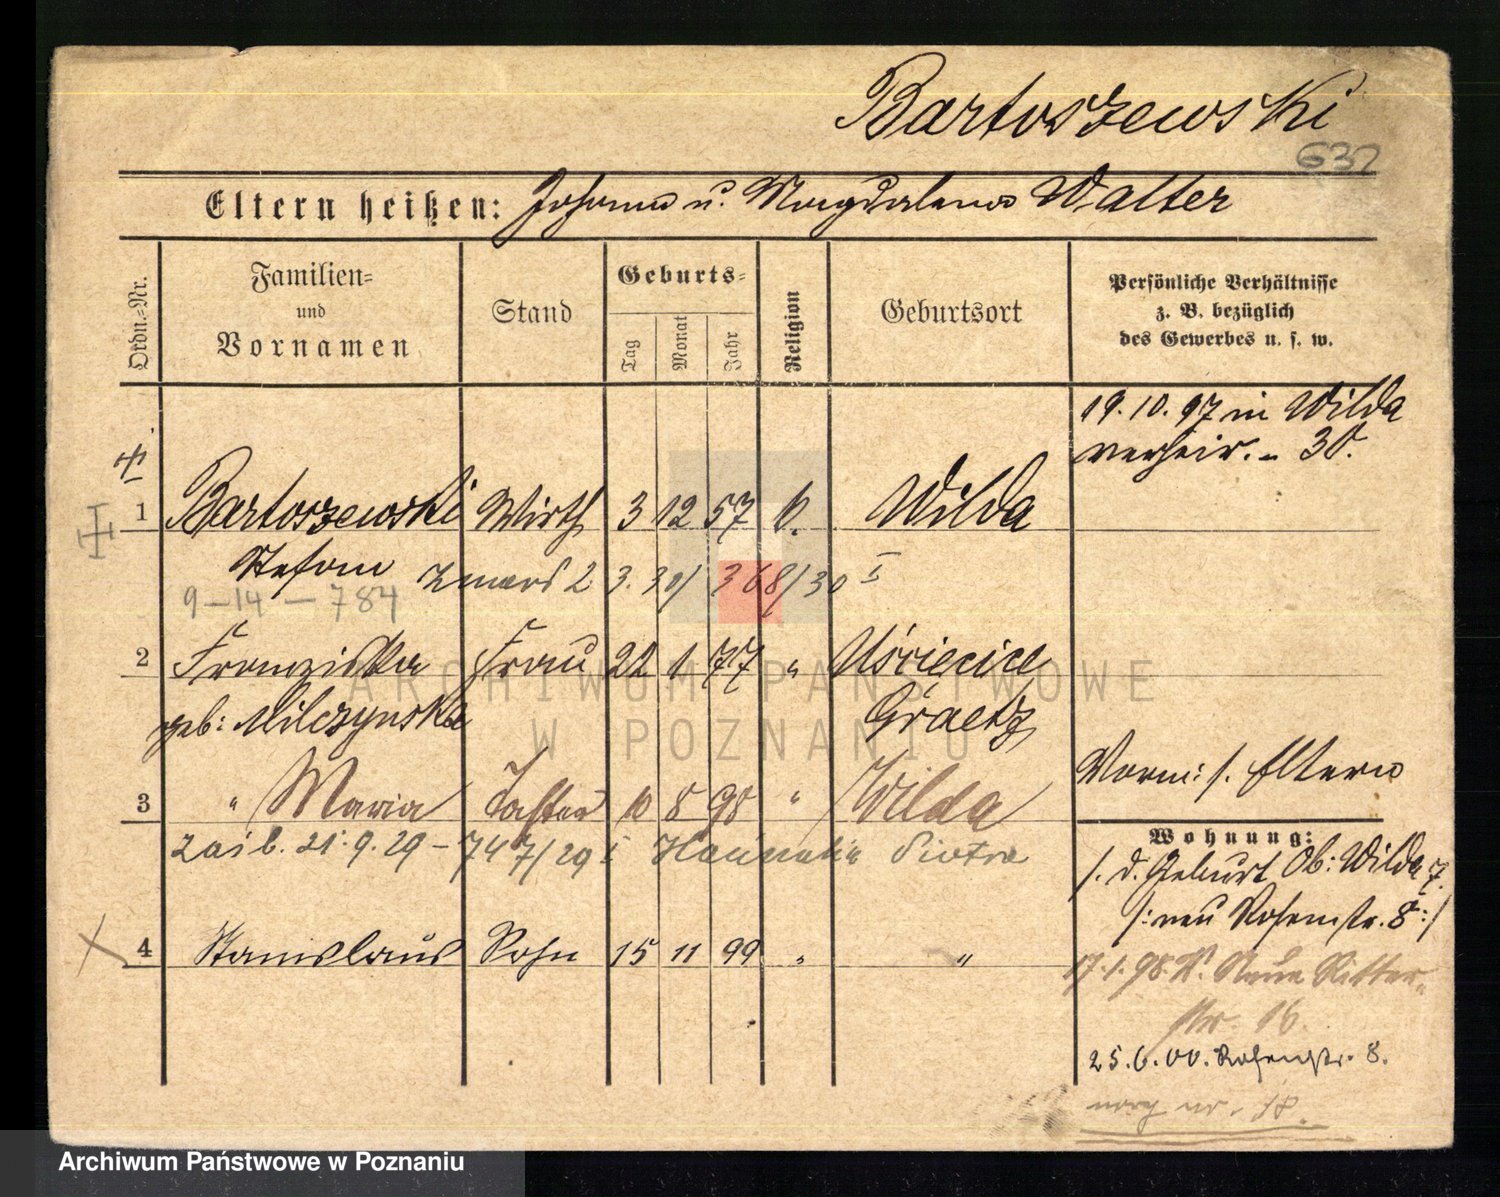 Bartoszewski
632
Eltern heißen: Johann u. Magdalena Walter
Ordn.=Nr.
Familien=
und
Vornamen
Stand
Geburts=
Tag
Monat
Jahr
Religion
Geburtsort
Persönliche Verhältnisse
z. B. bezüglich
des Gewerbes u. s. w.
19. 10. 97 in Wilda
verheir. - 30.
1 Bartoszewski Wirth 3 12 57 k. Wilda
Stefan zmarł 2 3. 30/ 368/30 I
9-14-784
2 Franziska Frau 22 1 77 " Uścięcice
geb: Milczynska Graetz
3 " Maria Tochter 10 8 98 " Wilda
Vorm: s. Eltern
Wohnung:
zaśl. 21.9.29 - 747/29 I Piotra
s. d. Geburt Ob: Wilda 7.
/: neu Rosenstr. 8 :/
4 Stanislaus Sohn 15 11 99 " "
17.1.98. Neue Ritter-
str. 16.
25.6.00. Rosenstr. 8.
ARCHIWUM PAŃSTWOWE
W POZNANIU
Archiwum Państwowe w Poznaniu